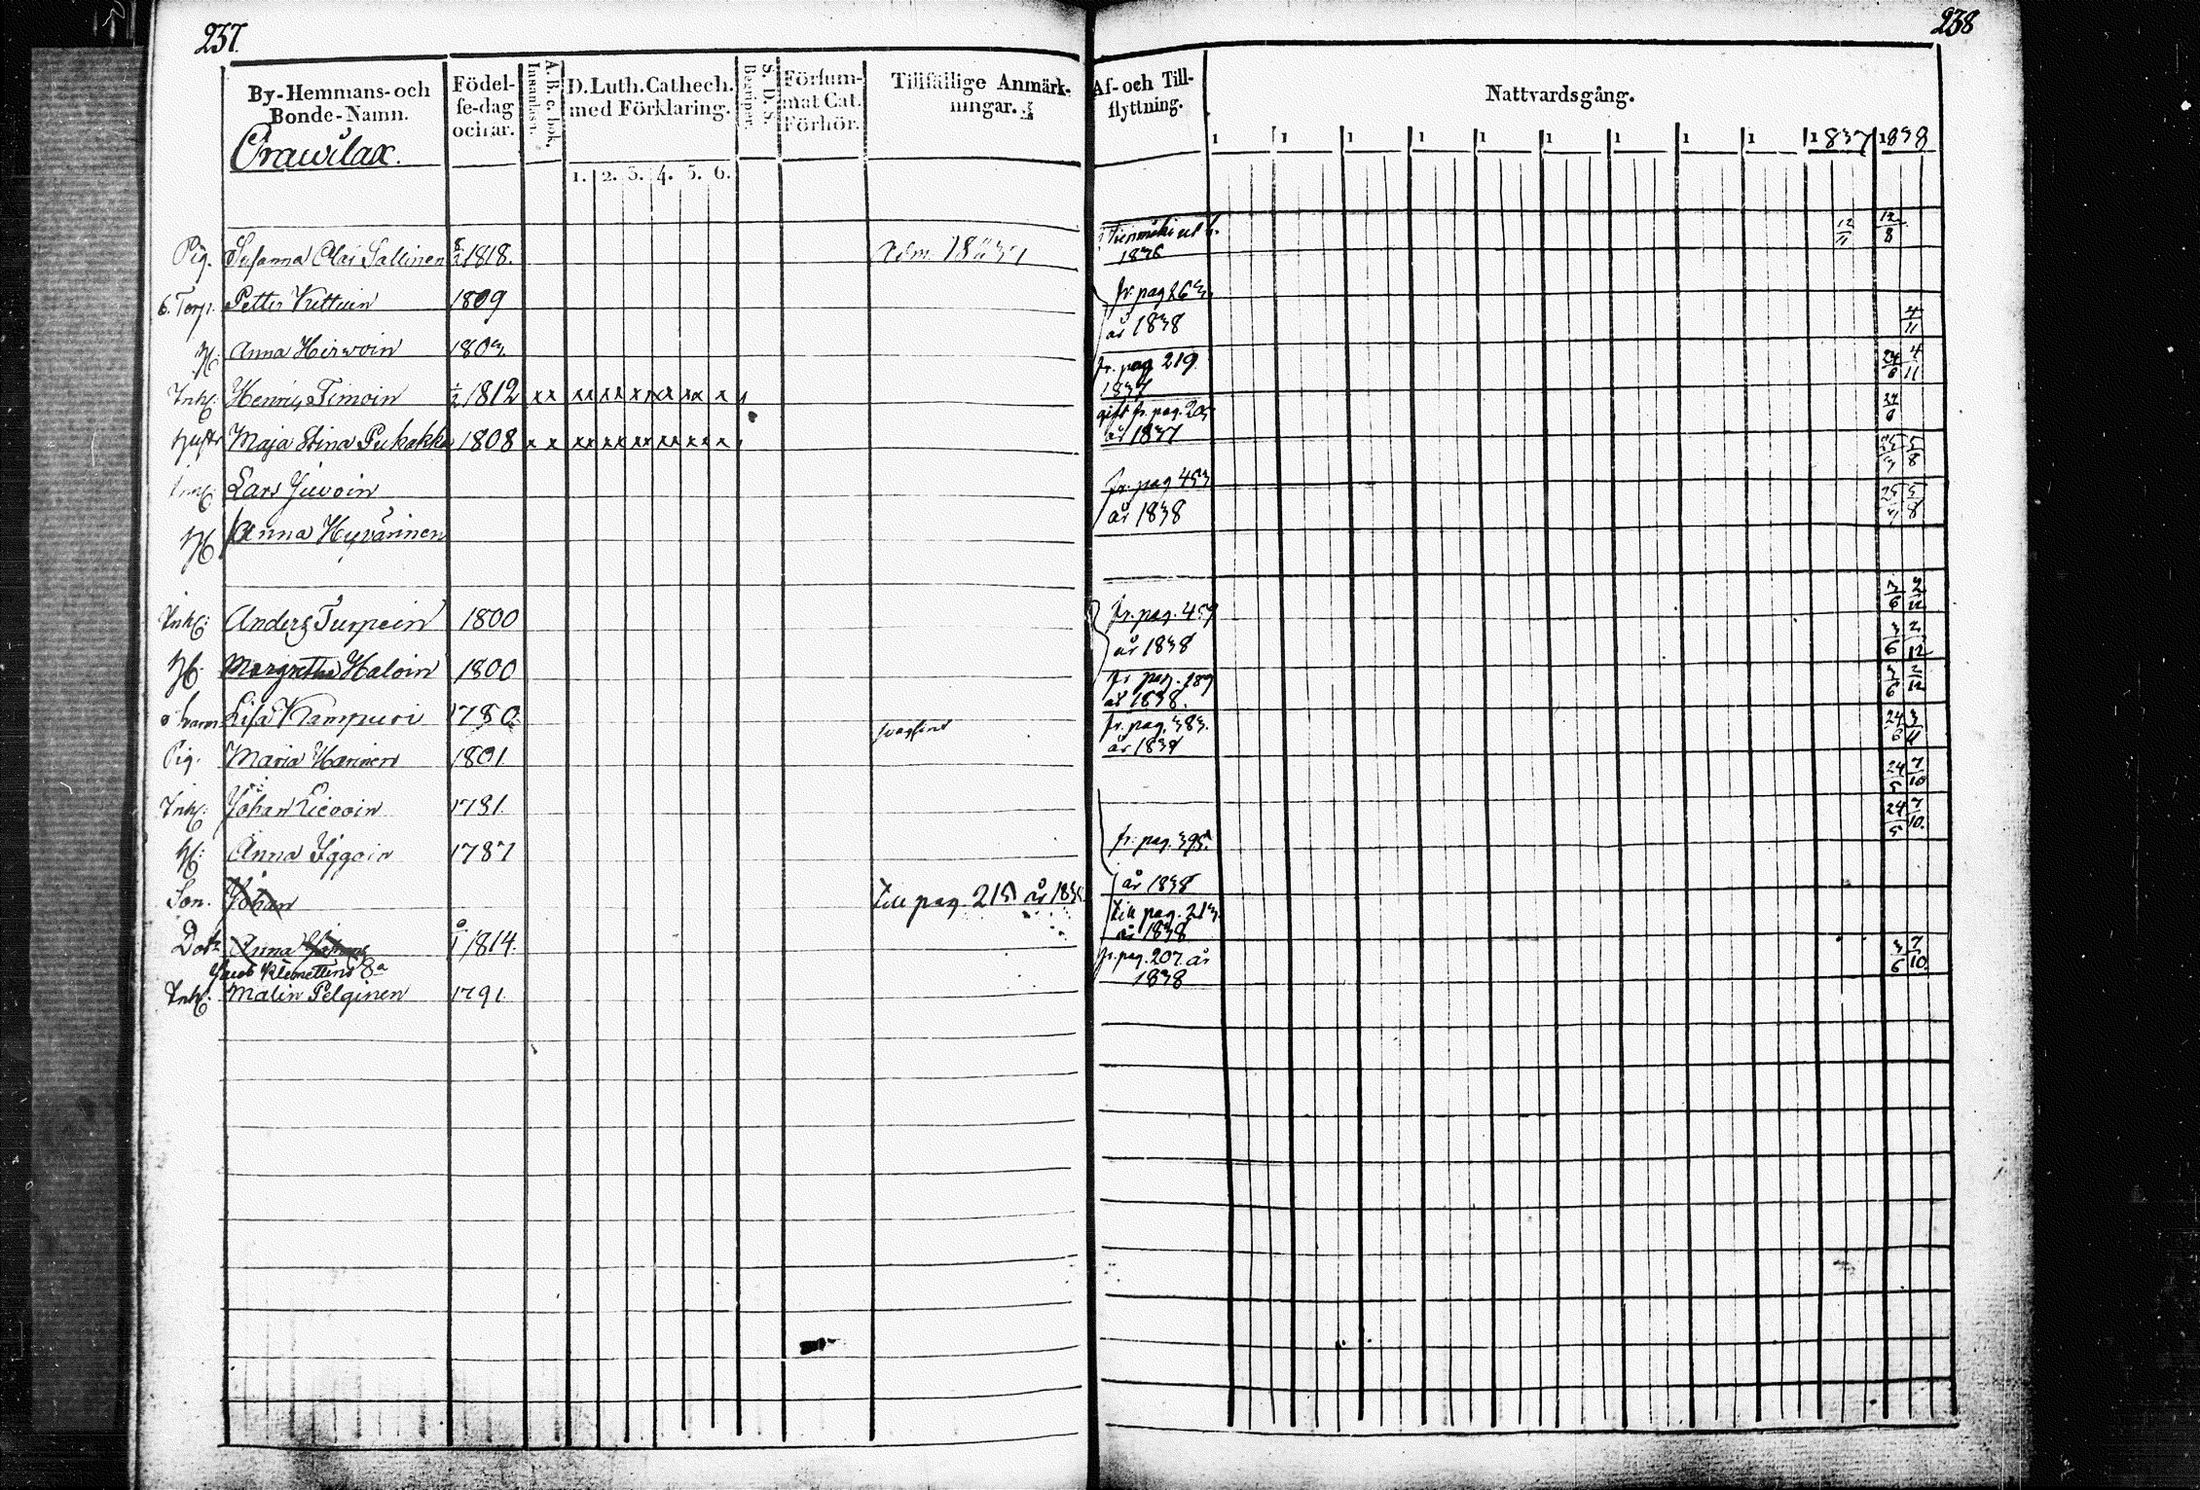 237.
By-Hemmans- och Bonde-Namn.
Födel-se-dag och år.
A. B. c. bok. Innanläsn.
D. Luth. Cathech. med Förklaring.
S. D. S. Begriper.
Försum-mat Cat. Förhör.
Tillfällige Anmärk-ningar.
Orawilax.
1. 2. 3. 4. 5. 6.
Pig. Susanna Olai Sallinen 1818.
6. Torp. Petter 1809
H: Anna Hirwoin 1803.
Inh: Henric Timoin 1/2 1812 x x xx xx x x x x x x
Hustr Maja Stina Pukakka 1808 x x xx xx xx xx x x x
Inh: Lars Juvoin
H Anna Hyvärinen
Inh: Anders Turpein 1800
H. Margretha Haloin 1800
Lisa Kampuri 1780
Pig. Maria Harinen 1801.
Inh: Johan 1781.
H: Anna Iggoin 1787
Son. Johan till pag. 215 år 1838
Dotr Anna 1814.
Malin Pelginen 1791.
238
Af- och Till-flyttning.
Nattvardsgång.
1 1 1 1 1 1 1 1 1 1837 1838
1836 12/11 12/8
fr. pag 263
år 1838 4/11
fr. pag 219. 24/6 4/11
1837
gift fr. pag. 205 24/6
år 1837 5/8
fr. pag 453
år 1838 5/8
3/6 2/12
fr. pag. 457
år 1838 3/6 2/12
fr pag. 189 3/6 2/12
år 1838.
fr. pag. 383. 24/6 3/11
år 1838
24/5 7/10
24/5 7/10.
fr. pag. 395.
år 1838
till pag. 213.
år 1838
fr. pag. 207. år 3/6 7/10.
1838